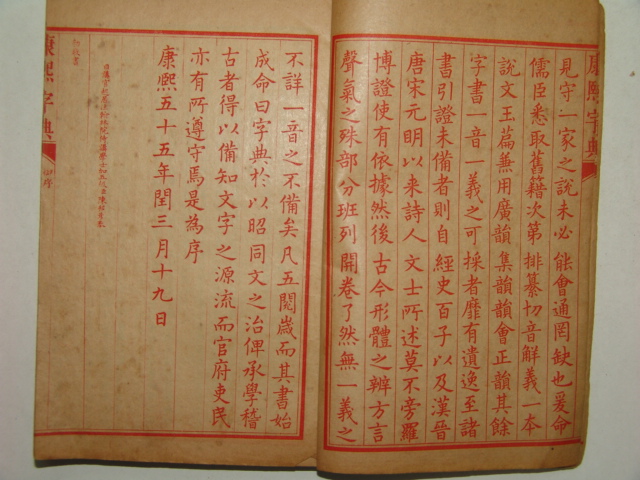 康熙字典
見守一家之說未必能會通罔缺也爰命
儒臣悉取舊籍次第排纂切音解義一本
說文玉篇兼用廣韻集韻韻會正韻其餘
字書一音一義之可採者靡有遺逸至諸
書引證未備者則自經史百子以及漢晉
唐宋元明以來詩人文士所述莫不旁羅
博證使有依據然後古今形體之辨方言
聲氣之殊部分班列開卷了然無一義之
不詳一音之不備矣凡五閱歲而其書始
成命曰字典於以昭同文之治俾承學稽
古者得以備知文字之源流而官府吏民
亦有所遵守焉是為序
康熙五十五年閏三月十九日
日講官起居注翰林院侍講學士加五級臣陳邦彥奉
勅敬書
康熙字典
御序